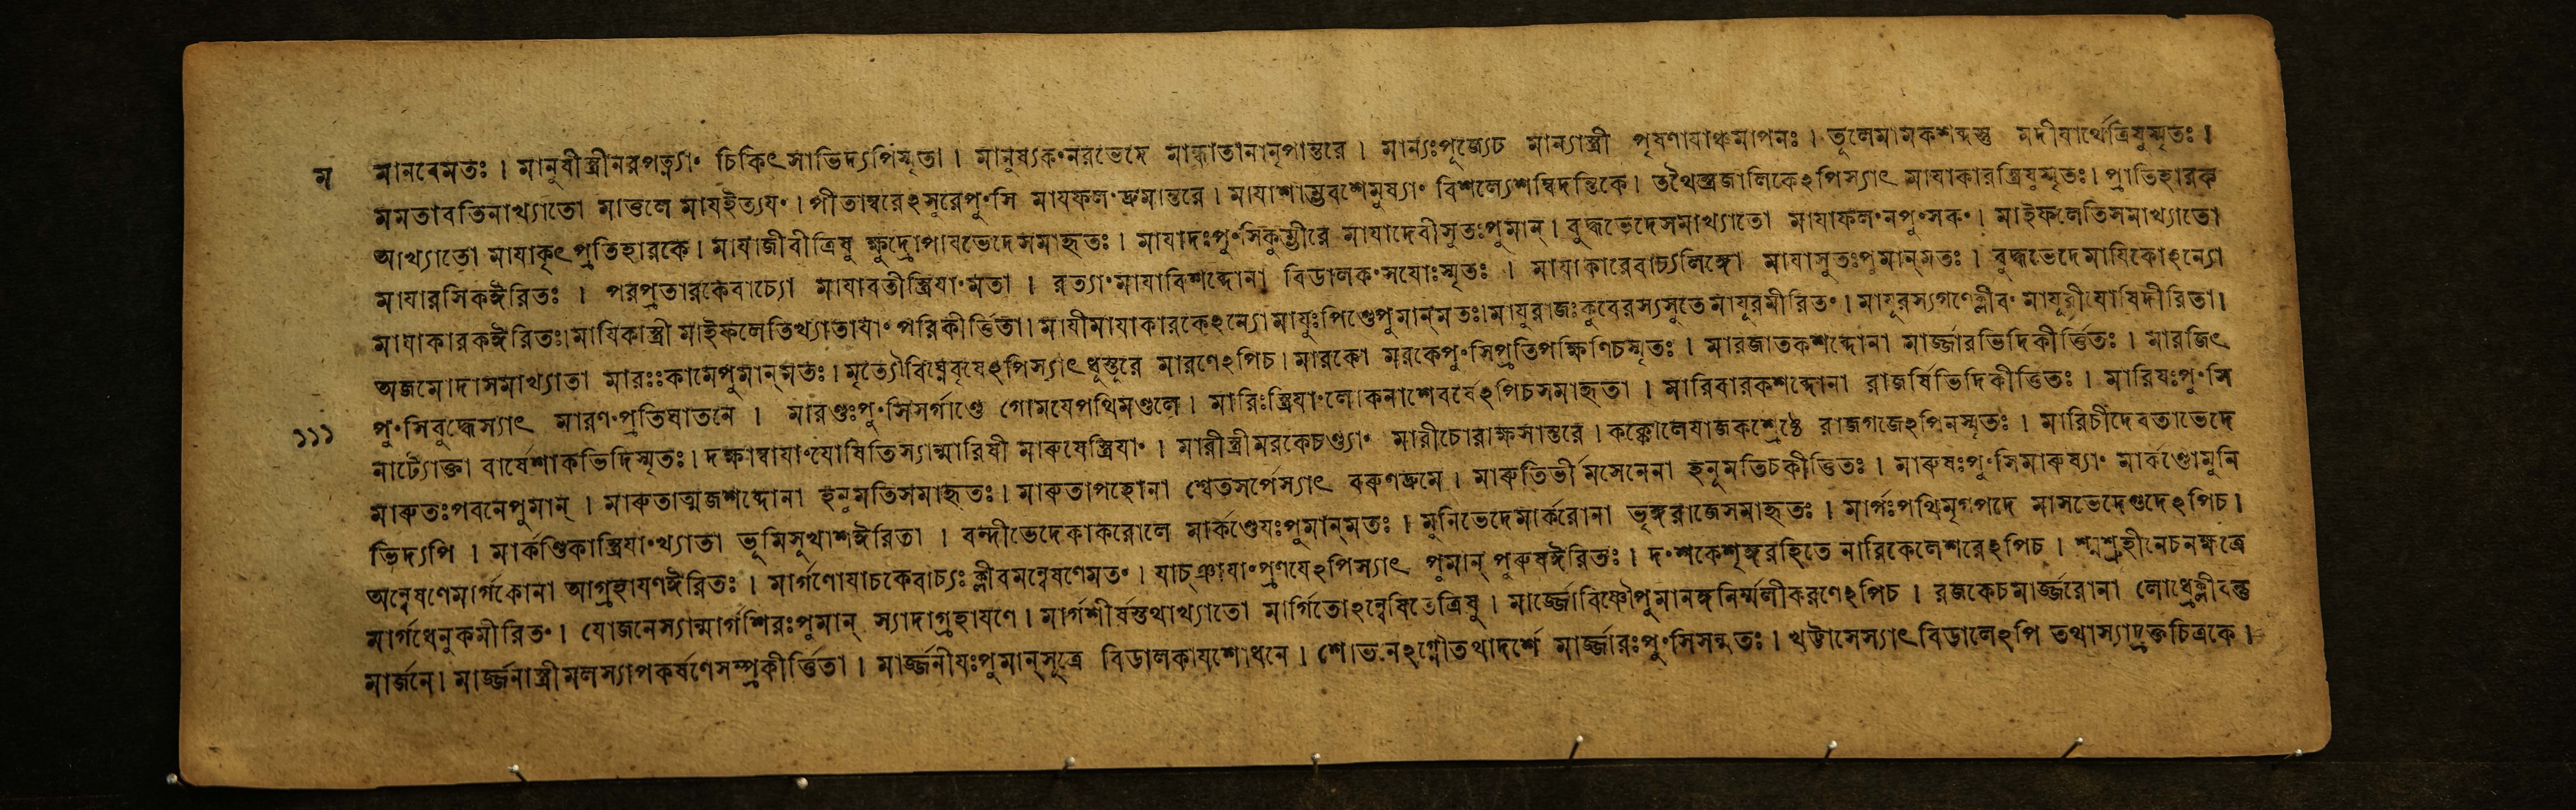 ম মানবেমতঃ। মানুষীস্ত্রীনরপত্ন্যাং চিকিৎসাভিদ্যপিস্মৃতা। মানুষ্যকংনরভেদে মান্ধাতানানৃপান্তরে। মান্যঃপূজ্যেচ মান্যাস্ত্রী পৃষণাযাঞ্চমাপনঃ। তূলেমামকশব্দস্তু মদীযার্থেত্রিষুস্মৃতঃ।
মমতাবতিনাখ্যাতো মাতুলে মাযইত্যযং। পীতাম্বরেঽসুরেপুংসি মাযফলংদ্রুমান্তরে। মাযাশাম্ভবশেমুষ্যাং বিশল্যেশম্বিদন্তিকে। তথৈন্দ্রজালিকেঽপিস্যাৎ মাযাকারস্ত্রিষুস্মৃতঃ। প্রাতিহারক
আখ্যাতো মাযাকৃৎপ্রতিহারকে। মাযাজীবীত্রিষু ক্ষুদ্রোপাযভেদেসমাহৃতঃ। মাযাদঃপুংসিকুম্ভীরে মাযাদেবীসুতঃপুমান্। বুদ্ধভেদেসমাখ্যাতো মাযাফলংনপুংসকং। মাইফলেতিসমাখ্যাতো
মাযারসিকঈরিতঃ। পরপ্রতারকেবাচ্যো মাযাবতীস্ত্রিযাংমতা। রত্যাংমাযাবিশব্দোনা বিডালকংসযোঃস্মৃতঃ। মাযাকারেবাচ্যলিঙ্গো মাযাসুতঃপুমান্মতঃ। বুদ্ধভেদেমাযিকোঽন্যো
মাযাকারকঈরিতঃ।মাযিকাস্ত্রী মাইফলেতিখ্যাতাযাং পরিকীর্ত্তিতা। মাযীমাযাকারকেঽন্যো।মাযুঃপিণ্ডেপুমান্মতঃ।মাযুরাজঃকুবেরস্যসুতে মাযূরমীরিতং। মাযূরস্যগণেক্লীবং মাযূরীযোষিদীরিতা।
অজমোদাসমাখ্যাতা মারঃঃকামেপুমান্মতঃ। মৃত্যৌবিঘ্নেবৃষেঽপিস্যাৎধুস্তুরে মারণেঽপিচ। মারকো মরকেপুংসিপ্রতিপক্ষিণিচস্মৃতঃ। মারজাতকশব্দোনা মার্জ্জারভিদিকীর্ত্তিতঃ। মারজিৎ
১১১ পুংসিবুদ্ধেস্যাৎ মারণংপ্রতিঘাতনে। মারণ্ডঃপুংসিসর্পাণ্ডে গোমযেপথিমণ্ডলে। মারিঃস্ত্রিযাংলোকনাশেবর্ষেঽপিচসমাহৃতা। মারিবারকশব্দোনা রাজর্ষিভিদিকীর্ত্তিতঃ। মারিষঃপুংসি
নাট্যোক্ত্যা বার্ষেশাকভিদিস্মৃতঃ। দক্ষাম্বাযাংযোষিতিস্যান্মারিষী মারুষেস্ত্রিযাং। মারীস্ত্রীমরকেচণ্ড্যাং মারীচোরাক্ষসান্তরে। কক্কোলেযাজকশ্রেষ্ঠে রাজগজেঽপিনস্মৃতঃ। মারিচীদেবতাভেদে
মারুতঃপবনেপুমান্। মারুতাত্মজশব্দোনা হনূমতিসমাহৃতঃ। মারুতাপহোনা শ্বেতসর্পেস্যাৎ বরুণদ্রুমে। মারুতির্ভীমসেনেনা হনুমতিচকীর্ত্তিতঃ। মারুষঃপুংসিমারুষ্যাং মার্কণ্ডোমুনি
ভিদ্যপি। মার্কণ্ডিকাস্ত্রিযাংখ্যাতা ভূমিসুখাশঈরিতা। বন্দীভেদেকাকরোলে মার্কণ্ডেযঃপুমান্মতঃ। মুনিভেদেমার্করোনা ভৃঙ্গরাজেসমাহৃতঃ। মার্গঃপথিমৃগপদে মাসভেদেগুদেঽপিচ।
অন্বেষণেমার্গকোনা আগ্রহাযণঈরিতঃ। মার্গণোযাচকেবাচ্যঃ ক্লীবমন্বেষণেমতং। যাচ্ঞাযাংপ্রণযেঽপিস্যাৎ পুমান্ পুরুষঈরিতঃ। দংশকেশৃঙ্গরহিতে নারিকেলেশরেঽপিচ। শ্মশ্রুহীনেচনক্ষত্রে
মার্গধেনুকমীরিতং। যোজনেস্যান্মার্গশিরঃপুমান্ স্যাদাগ্রহাযণে। মার্গশীর্ষস্তথাখ্যাতো মার্গিতোঽন্বেষিতেত্রিষু। মার্জ্জোবিষ্ণৌপুমানঙ্গনির্ম্মলীকরণেঽপিচ। রজকেচমার্জ্জরোনা লোধ্রেক্লীবন্তু
মার্জনে। মার্জ্জনাস্ত্রীমলস্যাপকর্ষণেসম্প্রকীর্ত্তিতা। মার্জ্জনীযঃপুমান্সূত্রে বিডালকাযশোধনে। শোভনেঽগ্নৌতথাদর্শে মার্জ্জারঃপুংসিসম্মতঃ। খট্টাসেস্যাৎবিডালেঽপি তথাস্যাদ্রক্তচিত্রকে।